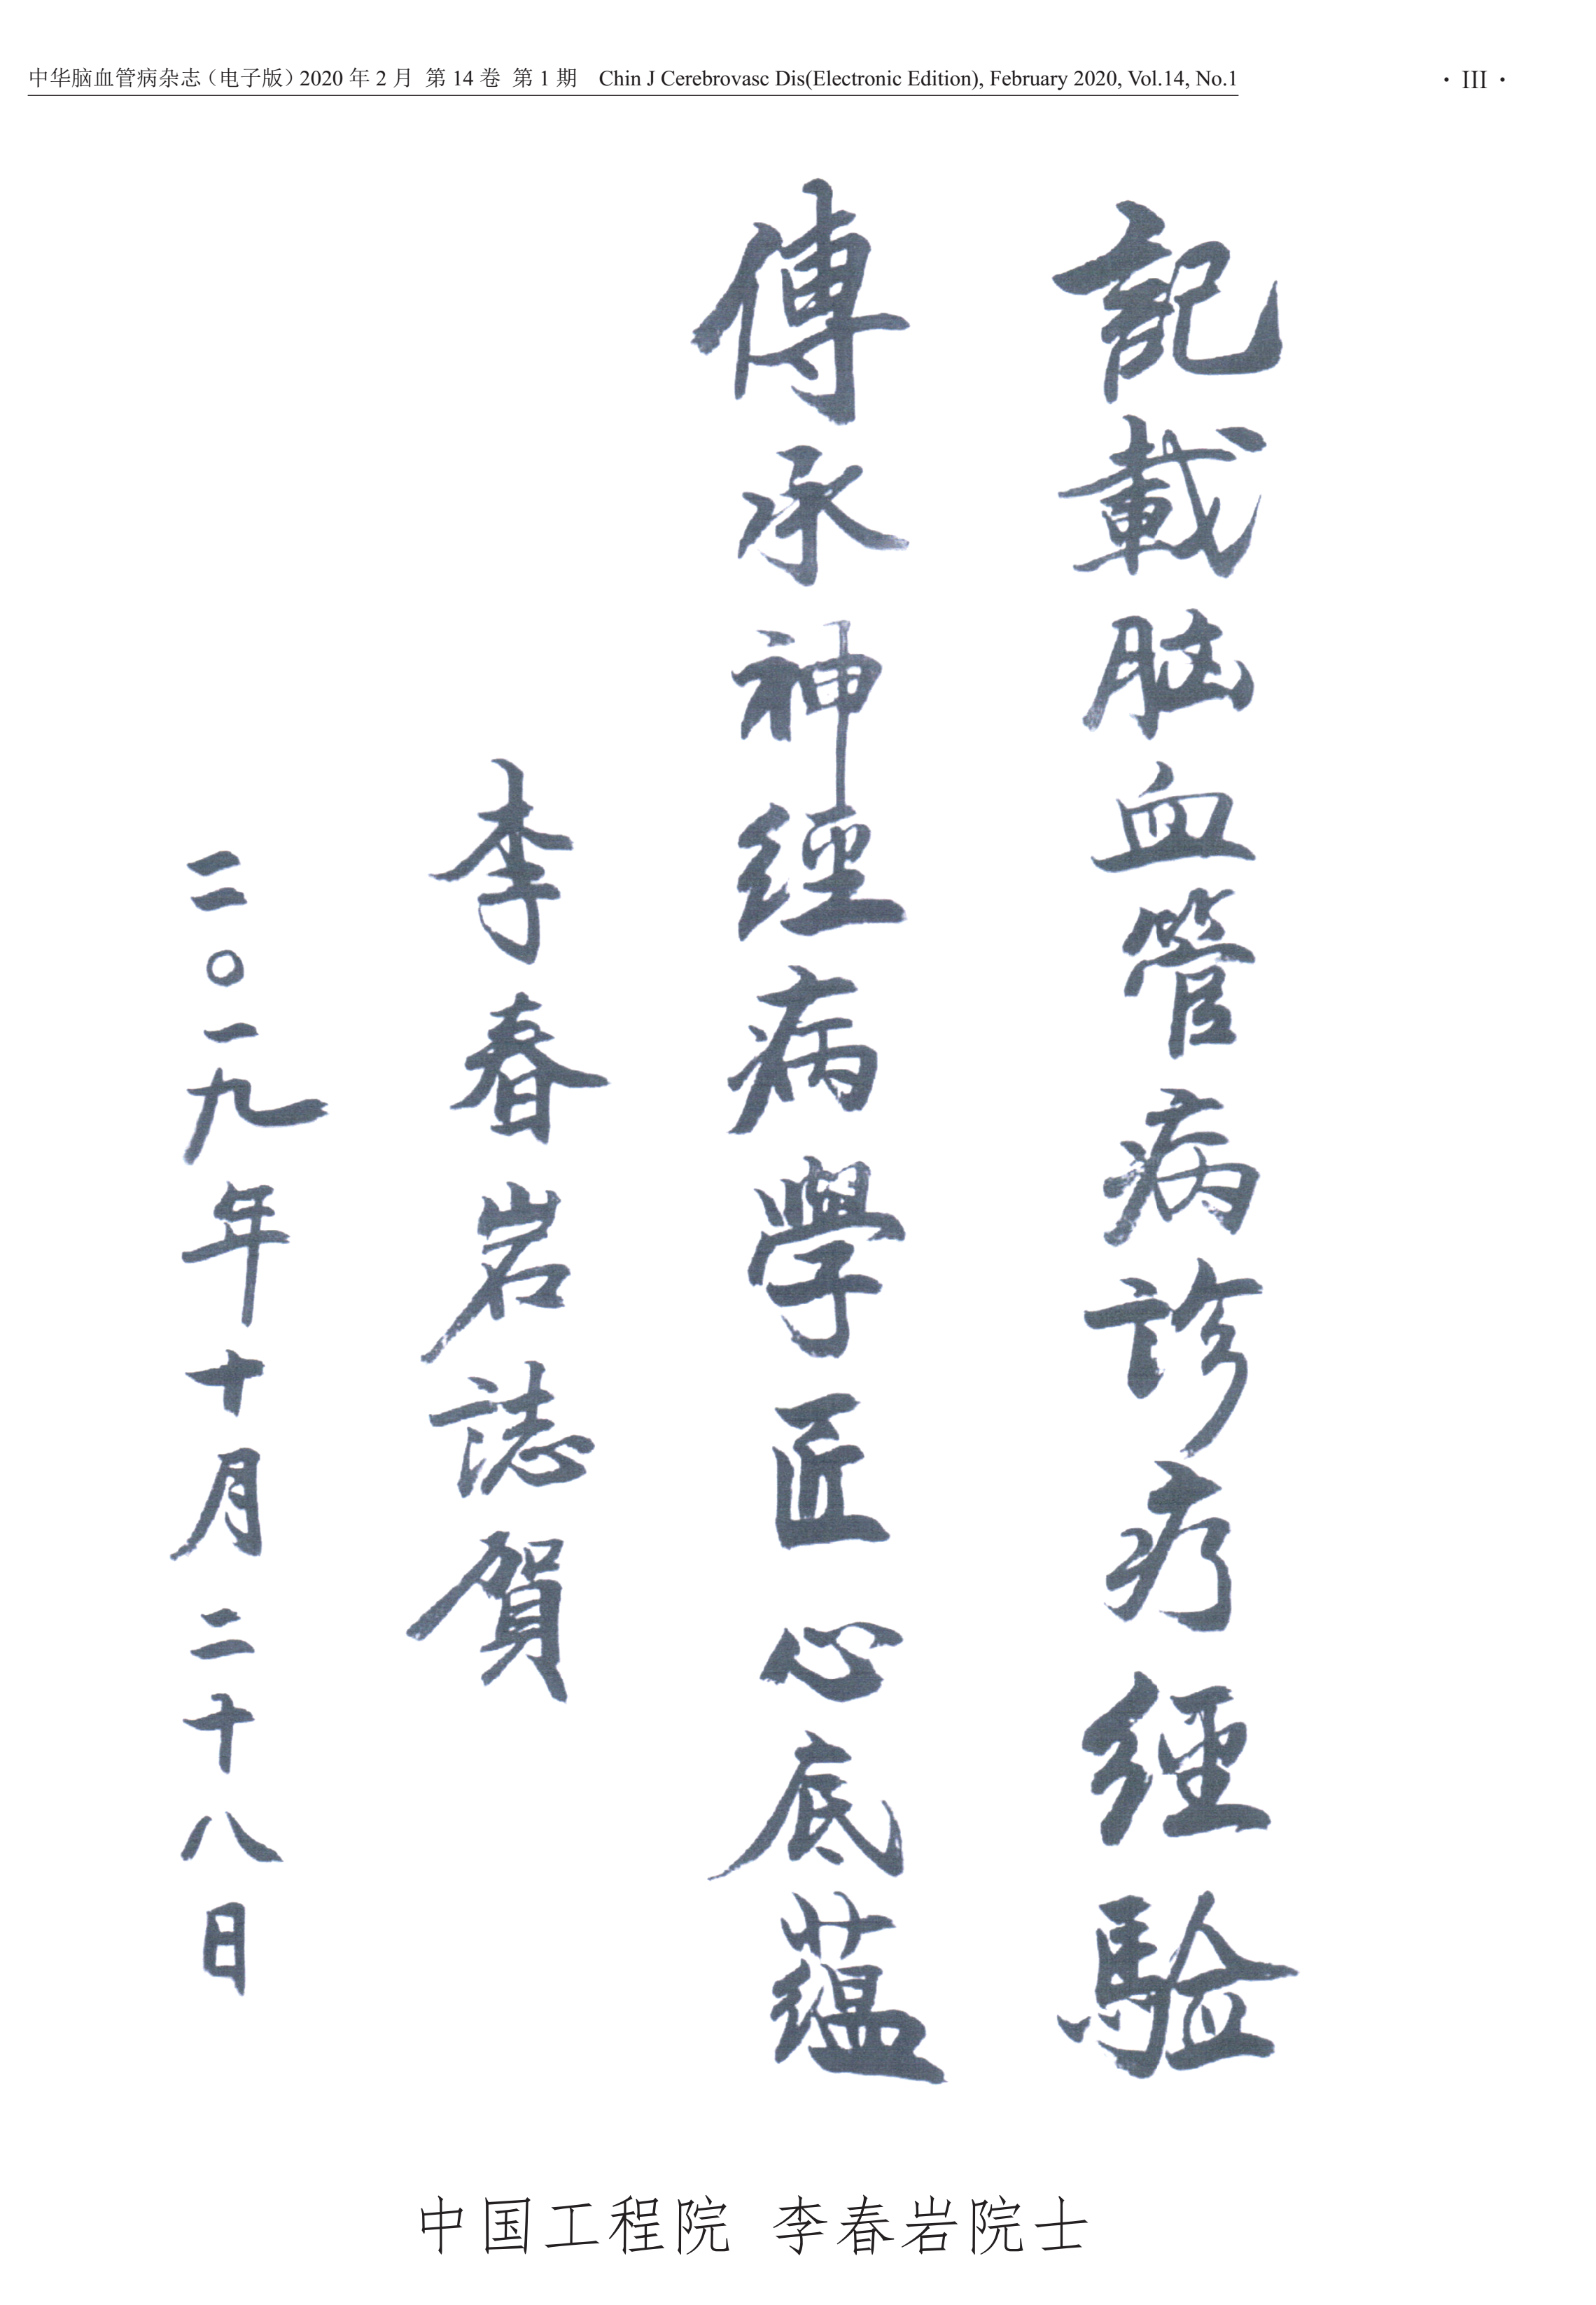 中华脑血管病杂志（电子版）2020 年 2 月 第 14 卷 第 1 期 Chin J Cerebrovasc Dis(Electronic Edition), February 2020, Vol.14, No.1
· III ·
記載脑血管病診疗經驗
傳承神經病學匠心底蘊
李春岩誌賀
二〇一九年十月二十八日
中国工程院 李春岩院士